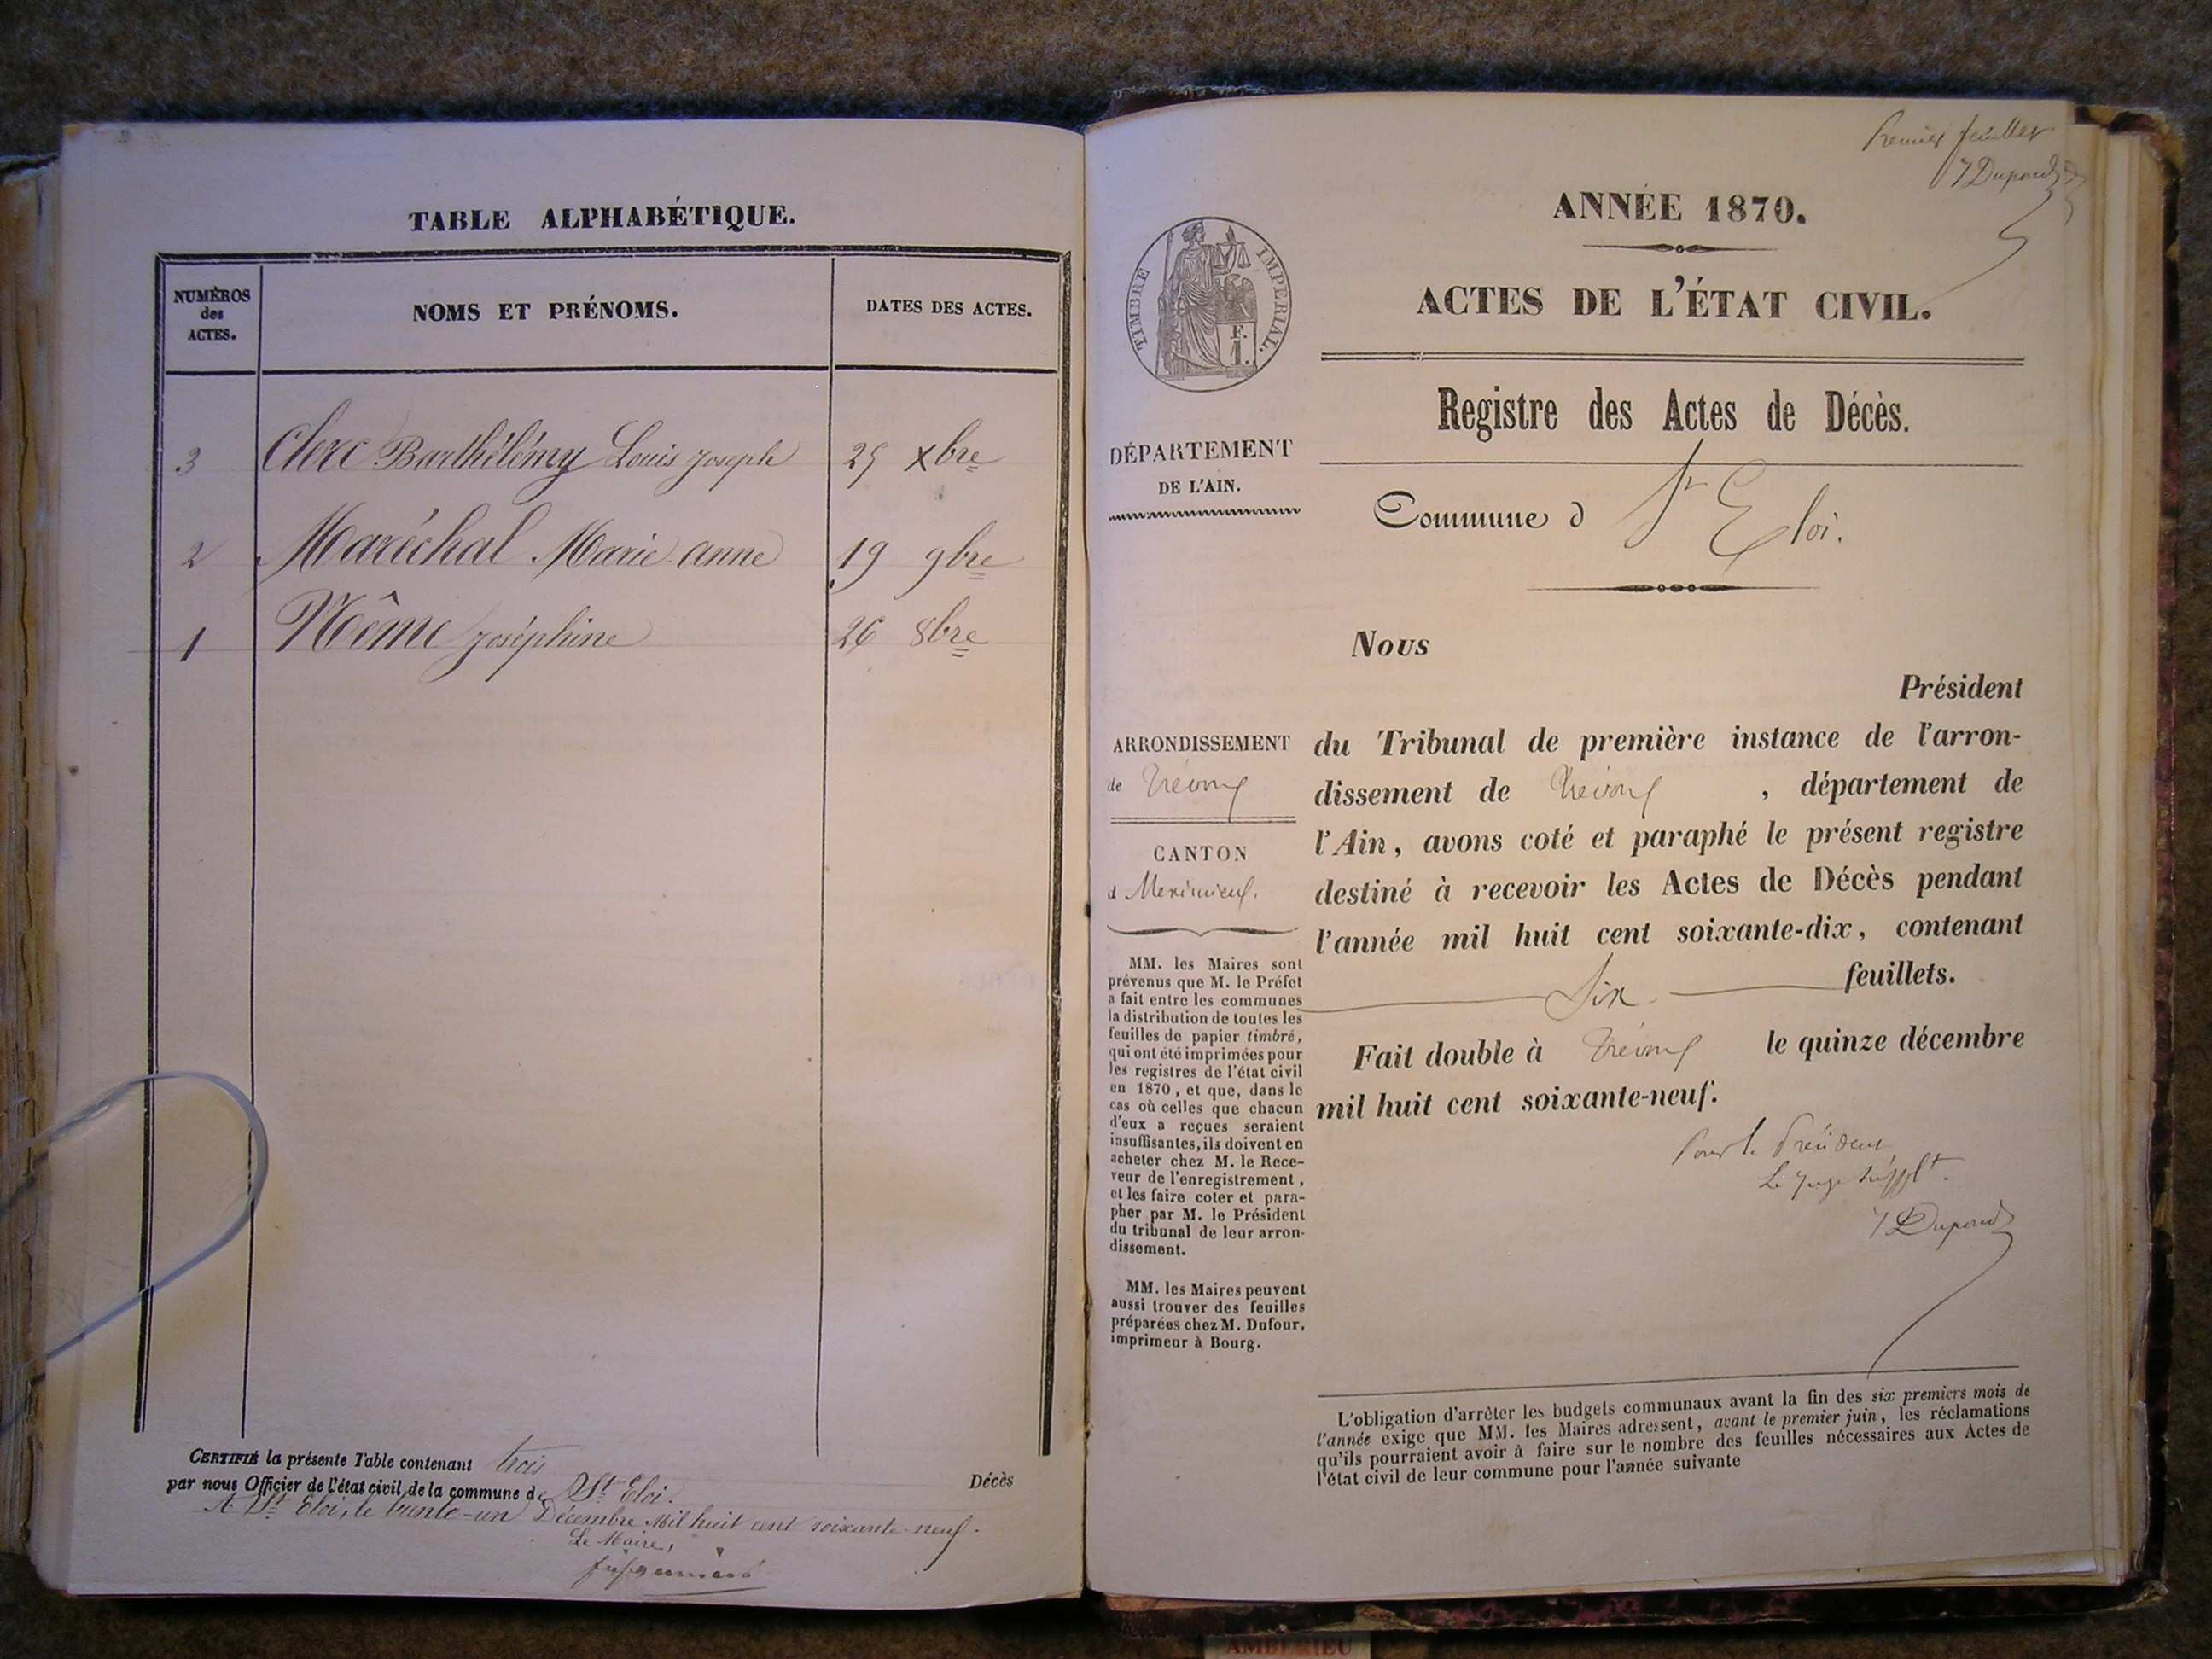 TABLE ALPHABÉTIQUE.
NUMÉROS
des
ACTES.
NOMS ET PRÉNOMS.
DATES DES ACTES.
3 Clerc Barthélémy Louis Joseph 25 Xbre
2 Maréchal Marie-anne 19 9bre
1 Même Joséphine 26 8bre
CERTIFIÉ la présente Table contenant trois Décès
par nous Officier de l'état civil de la commune de St Eloi.
A St Eloi, le trente-un Décembre Mil huit cent soixante-neuf.
Le Maire,
Premier feuillet
Dupond
ANNÉE 1870.
TIMBRE IMPERIAL.
F.
1.
ACTES DE L'ÉTAT CIVIL.
Registre des Actes de Décès.
DÉPARTEMENT
DE L'AIN.
Commune d St Eloi.
Nous
Président
du Tribunal de première instance de l'arron-
dissement de Trévoux, département de
l'Ain, avons coté et paraphé le présent registre
destiné à recevoir les Actes de Décès pendant
l'année mil huit cent soixante-dix, contenant
Six feuillets.
Fait double à Trévoux le quinze décembre
mil huit cent soixante-neuf.
Pour le Président
Le Juge suppt.
Dupond
ARRONDISSEMENT
de Trévoux
CANTON
d Meximieux.
MM. les Maires sont
prévenus que M. le Préfet
a fait entre les communes
la distribution de toutes les
feuilles de papier timbré,
qui ont été imprimées pour
les registres de l'état civil
en 1870, et que, dans le
cas où celles que chacun
d'eux a reçues seraient
insuffisantes, ils doivent en
acheter chez M. le Rece-
veur de l'enregistrement,
et les faire coter et para-
pher par M. le Président
du tribunal de leur arron-
dissement.
MM. les Maires peuvent
aussi trouver des feuilles
préparées chez M. Dufour,
imprimeur à Bourg.
L'obligation d'arrêter les budgets communaux avant la fin des six premiers mois de
l'année exige que MM. les Maires adressent, avant le premier juin, les réclamations
qu'ils pourraient avoir à faire sur le nombre des feuilles nécessaires aux Actes de
l'état civil de leur commune pour l'année suivante
AMBERIEU